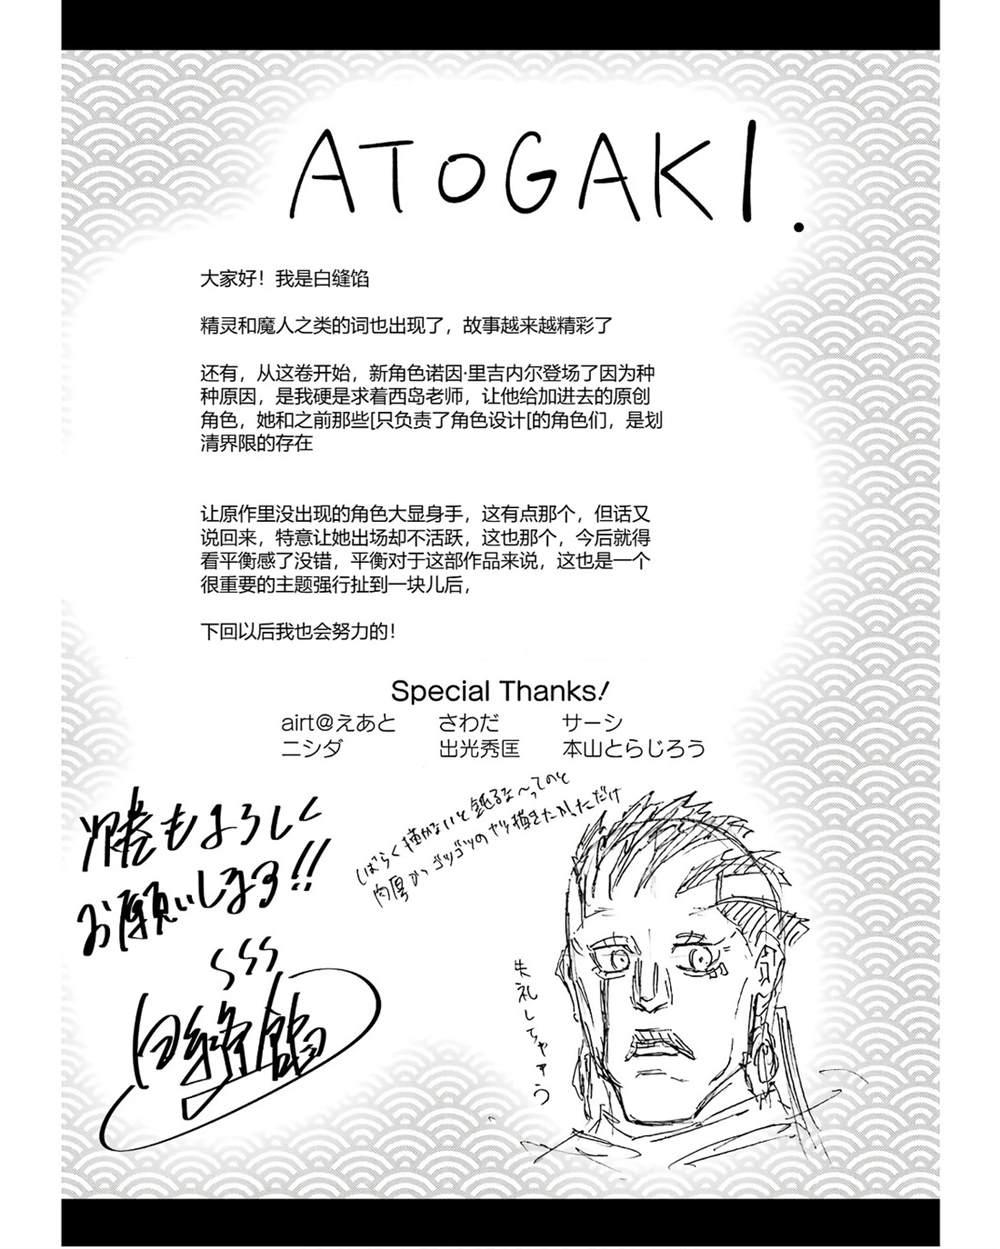 ATOGAKI.
大家好！我是白缝馅
精灵和魔人之类的词也出现了，故事越来越精彩了
还有，从这卷开始，新角色诺因·里吉内尔登场了因为种
种原因，是我硬是求着西岛老师，让他给加进去的原创
角色，她和之前那些[只负责了角色设计[的角色们，是划
清界限的存在
让原作里没出现的角色大显身手，这有点那个，但话又
说回来，特意让她出场却不活跃，这也那个，今后就得
看平衡感了没错，平衡对于这部作品来说，这也是一个
很重要的主题强行扯到一块儿后，
下回以后我也会努力的！
Special Thanks!
airt@えあと さわだ サーシ
ニシダ 出光秀匡 本山とらじろう
しばらく描かないと鈍るな〜ってのと
肉厚かつゴツゴツのヤツ描きたかっただけ
次巻もよろしく
お願いします!!
失礼しちゃう
白縫餡